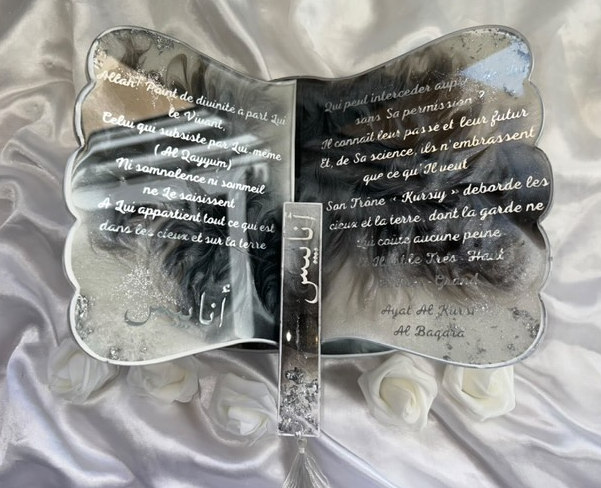 Allah! Point de divinité à part Lui
le Vivant,
Celui qui subsiste par Lui même
(Al Qayyum)
Ni somnolence ni sommeil
ne Le saisissent
A Lui appartient tout ce qui est
dans les cieux et sur la terre
أنايس
أنايس
Qui peut interceder
sans Sa permission ?
Il connaît leur passé et leur futur
Et, de Sa science, ils n'embrassent
que ce qu'Il veut
Son Trône " Kursiy » deborde les
cieux et la terre, dont la garde ne
Lui coûte aucune peine
Et Il est le Très Haut
Ayat Al Kursi
Al Baqara